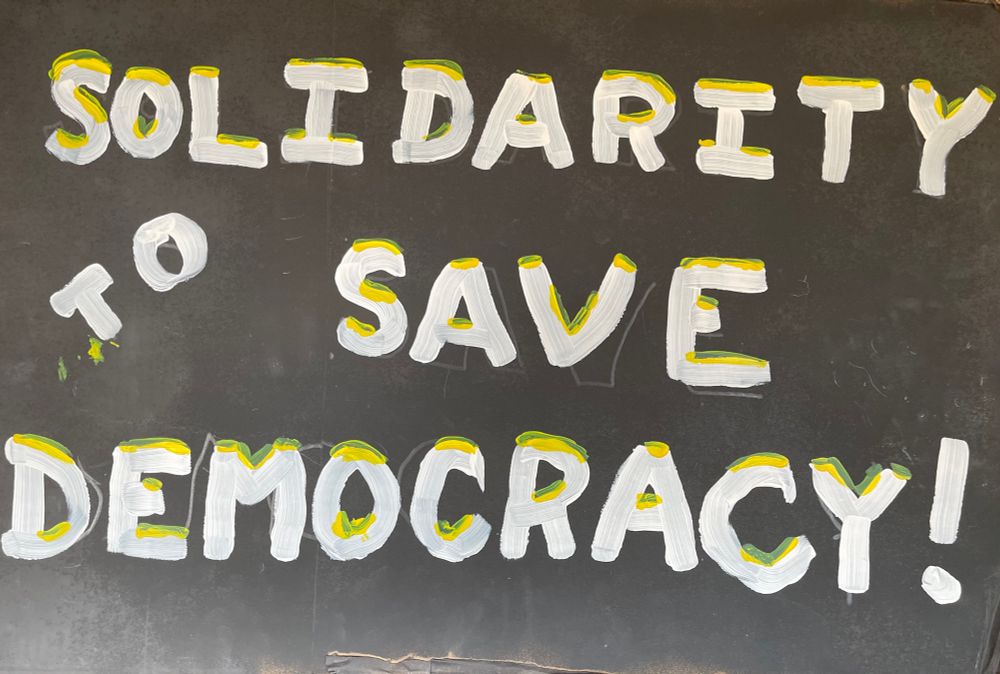 SOLIDARITY
TO SAVE
DEMOCRACY!